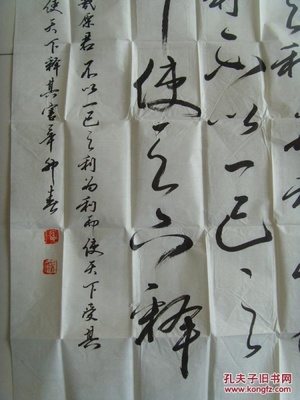 利
利不以一己之
使天下释
原君 不以一己之利为利而使天下受其
使天下释其害 春
孔夫子旧书网